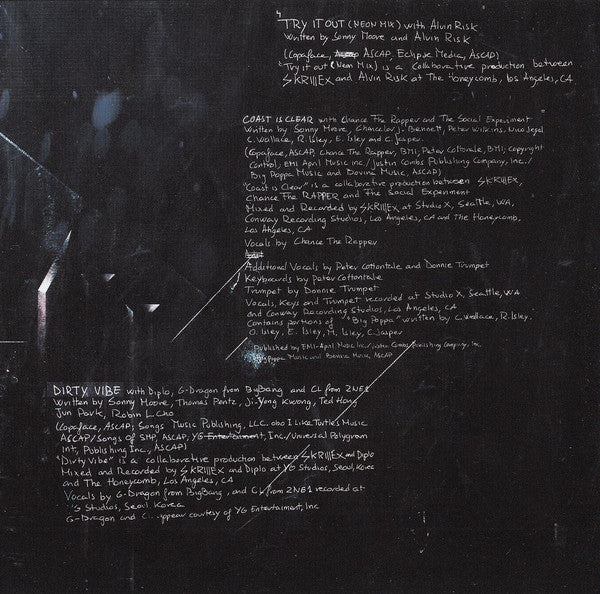 TRY IT OUT (NEON MIX) with Alvin Risk
Written by Sonny Moore and Alvin Risk
(Copaface, ASCAP, Eclipse Media, ASCAP)
"Try it out (Neon Mix) is a collaborative production between
SKRILLEX and Alvin Risk at The Honeycomb, Los Angeles, CA
COAST IS CLEAR with Chance The Rapper and The Social Experiment
Written by Sonny Moore, Chancelor J. Bennett, Peter Wilkins, Nico Segal
C. Wallace, R. Isley, E. Isley and C. Jasper
(Copaface, ASCAP, Chance The Rapper, BMI, Peter Cottontale, BMI; Copyright
Control, EMI April Music inc./Justin Combs Publishing Company, Inc./
Big Poppa Music and Bovina Music, ASCAP)
"Coast is Clear" is a collaborative production between SKRILLEX,
Chance The RAPPER and The Social Experiment
Mixed and Recorded by SKRILLEX at Studio X, Seattle, WA,
Conway Recording Studios, Los Angeles, CA and The Honeycomb,
Los Angeles, CA
Vocals by Chance The Rapper
Additional Vocals by Peter Cottontale and Donnie Trumpet
Keyboards by Peter Cottontale
Trumpet by Donnie Trumpet
Vocals, Keys and Trumpet recorded at Studio X, Seattle, WA
and Conway Recording Studios, Los Angeles, CA
Contains portions of "Big Poppa" written by C. Wallace, R. Isley.
O. Isley, E. Isley, M. Isley, C. Jasper
Published by EMI-April Music Inc/Justin Combs Publishing Company, Inc.
Big Poppa Music and Bovina Music, ASCAP
DIRTY VIBE with Diplo, G-Dragon from BigBang and CL from 2NE1
Written by Sonny Moore, Thomas Pentz, Ji-Yong Kwong, Ted Hong
Jun Park, Robin L. Cho
(Copaface, ASCAP; Songs Music Publishing, LLC. obo I Like Turtle's Music
ASCAP/Songs Of SMP, ASCAP, YG Entertainment, Inc/Universal Polygram
Int, Publishing Inc., ASCAP)
"Dirty Vibe" is a collaborative production between SKRILLEX and Diplo
Mixed and Recorded by SKRILLEX and Diplo at YG Studios, Seoul, Korea
and The Honeycomb, Los Angeles, CA
Vocals by G-Dragon from BigBang, and CL from 2NE1 recorded at
YG Studios, Seoul Korea
G-Dragon and CL appear courtesy of YG Entertainment, Inc